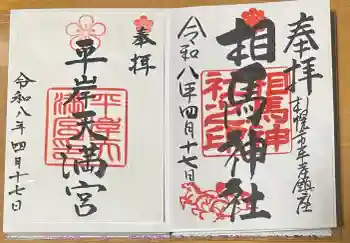 奉拝
札幌市平岸鎮座
相馬神社
令和八年四月十七日
奉拝
平岸天満宮
令和八年四月十七日